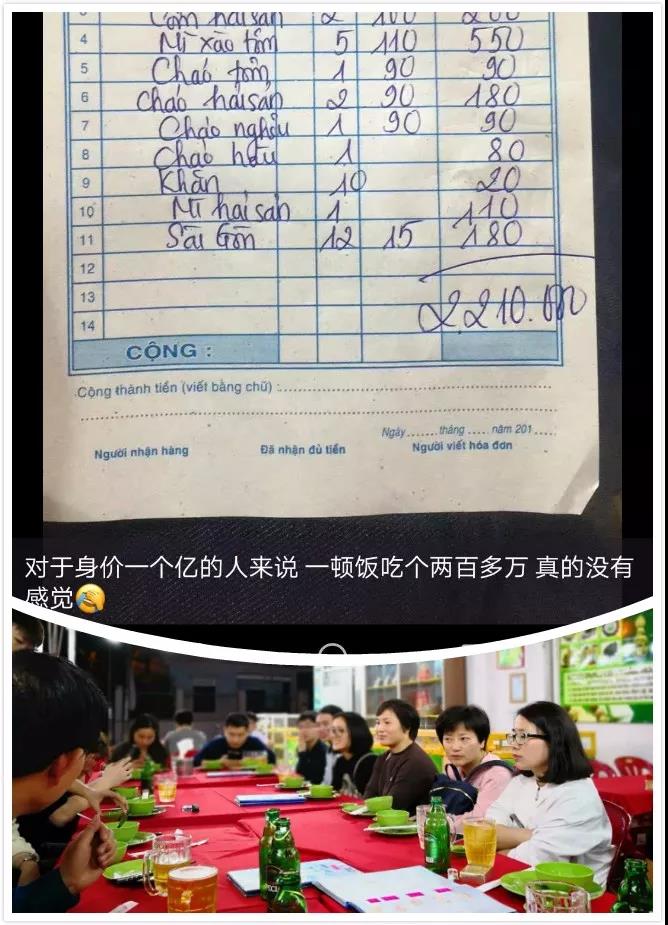 Cơm hải sản 2 100 200
4 Mì xào tôm 5 110 550
5 Cháo tôm 1 90 90
6 Cháo hải sản 2 90 180
7 Cháo nghêu 1 90 90
8 Cháo hàu 1 80
9 Khăn 10 20
10 Mì hải sản 1 110
11 Sài Gòn 12 15 180
12
13 2.210.000
14
CỘNG :
Cộng thành tiền (viết bằng chữ) :
Ngày ...... tháng ..... năm 201 .....
Người nhận hàng Đã nhận đủ tiền Người viết hóa đơn
对于身价一个亿的人来说 一顿饭吃个两百多万 真的没有
感觉🤦